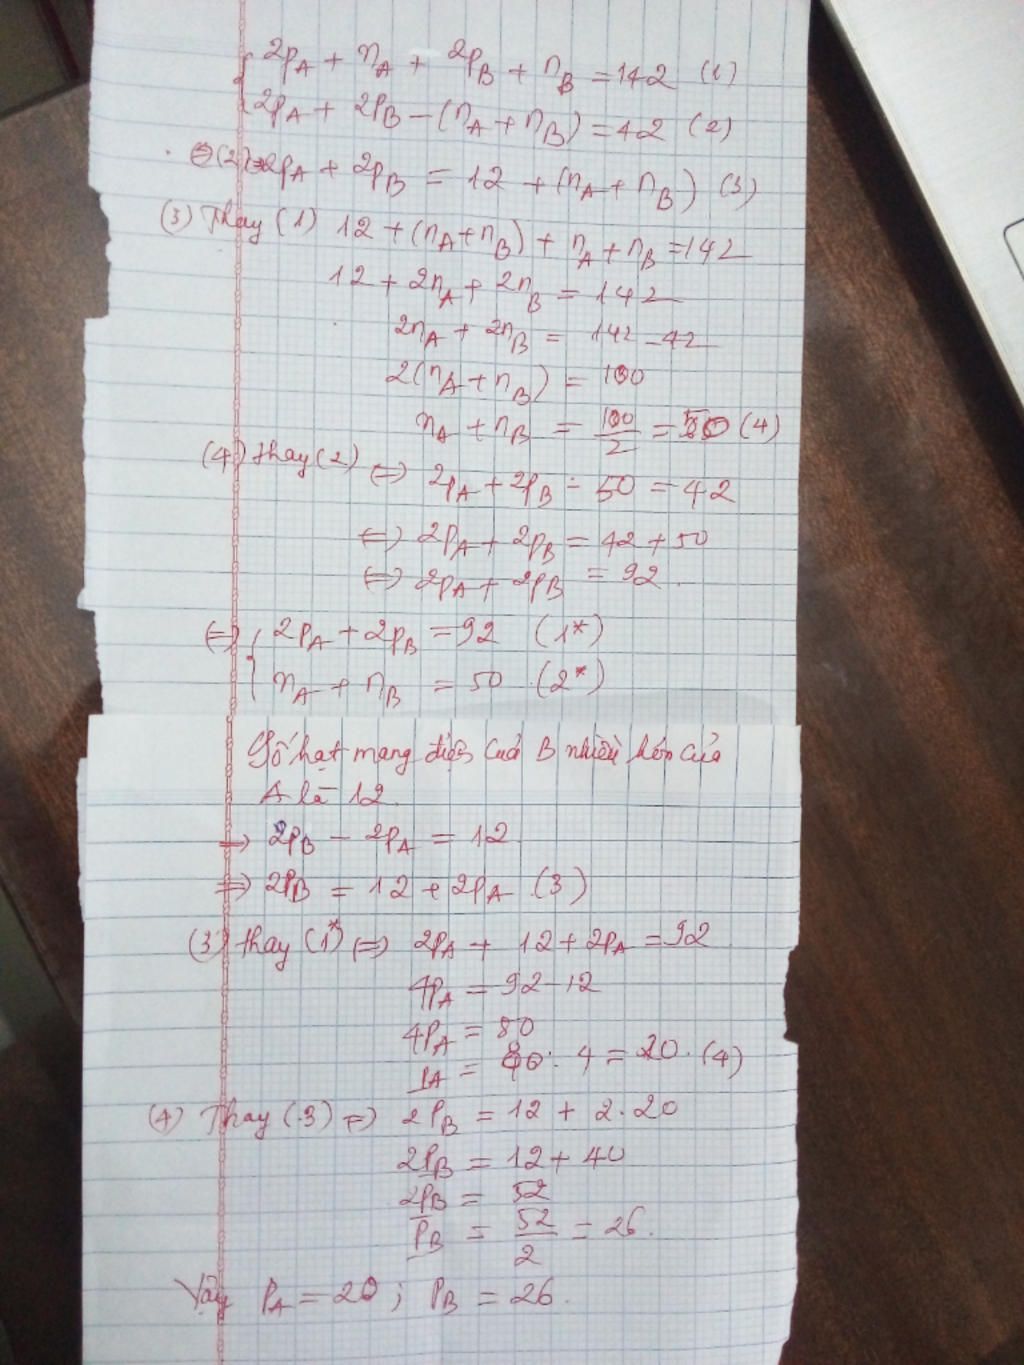 { 2pA + nA + 2pB + nB = 142 (1)
2pA + 2pB - (nA + nB) = 42 (2)
⇔ (2) ⇒ 2pA + 2pB = 12 + (nA + nB) (3)
(3) Thay (1) 12 + (nA + nB) + nA + nB = 142
12 + 2nA + 2nB = 142
2nA + 2nB = 142 - 42
2(nA + nB) = 100
nA + nB = 100/2 = 50 (4)
(4) thay (2) ⇔ 2pA + 2pB - 50 = 42
⇔ 2pA + 2pB = 42 + 50
⇔ 2pA + 2pB = 92.
⇔ { 2pA + 2pB = 92 (1*)
nA + nB = 50 (2*)
Số hạt mang điện của B nhiều hơn của
A là 12.
⇒ 2pB - 2pA = 12
⇒ 2pB = 12 + 2pA (3)
(3) thay (1*) ⇔ 2pA + 12 + 2pA = 92
4pA = 92 - 12
4pA = 80
pA = 80 : 4 = 20. (4)
(4) Thay (3) ⇒ 2pB = 12 + 2.20
2pB = 12 + 40
2pB = 52
pB = 52/2 = 26.
Vậy pA = 20 ; pB = 26.